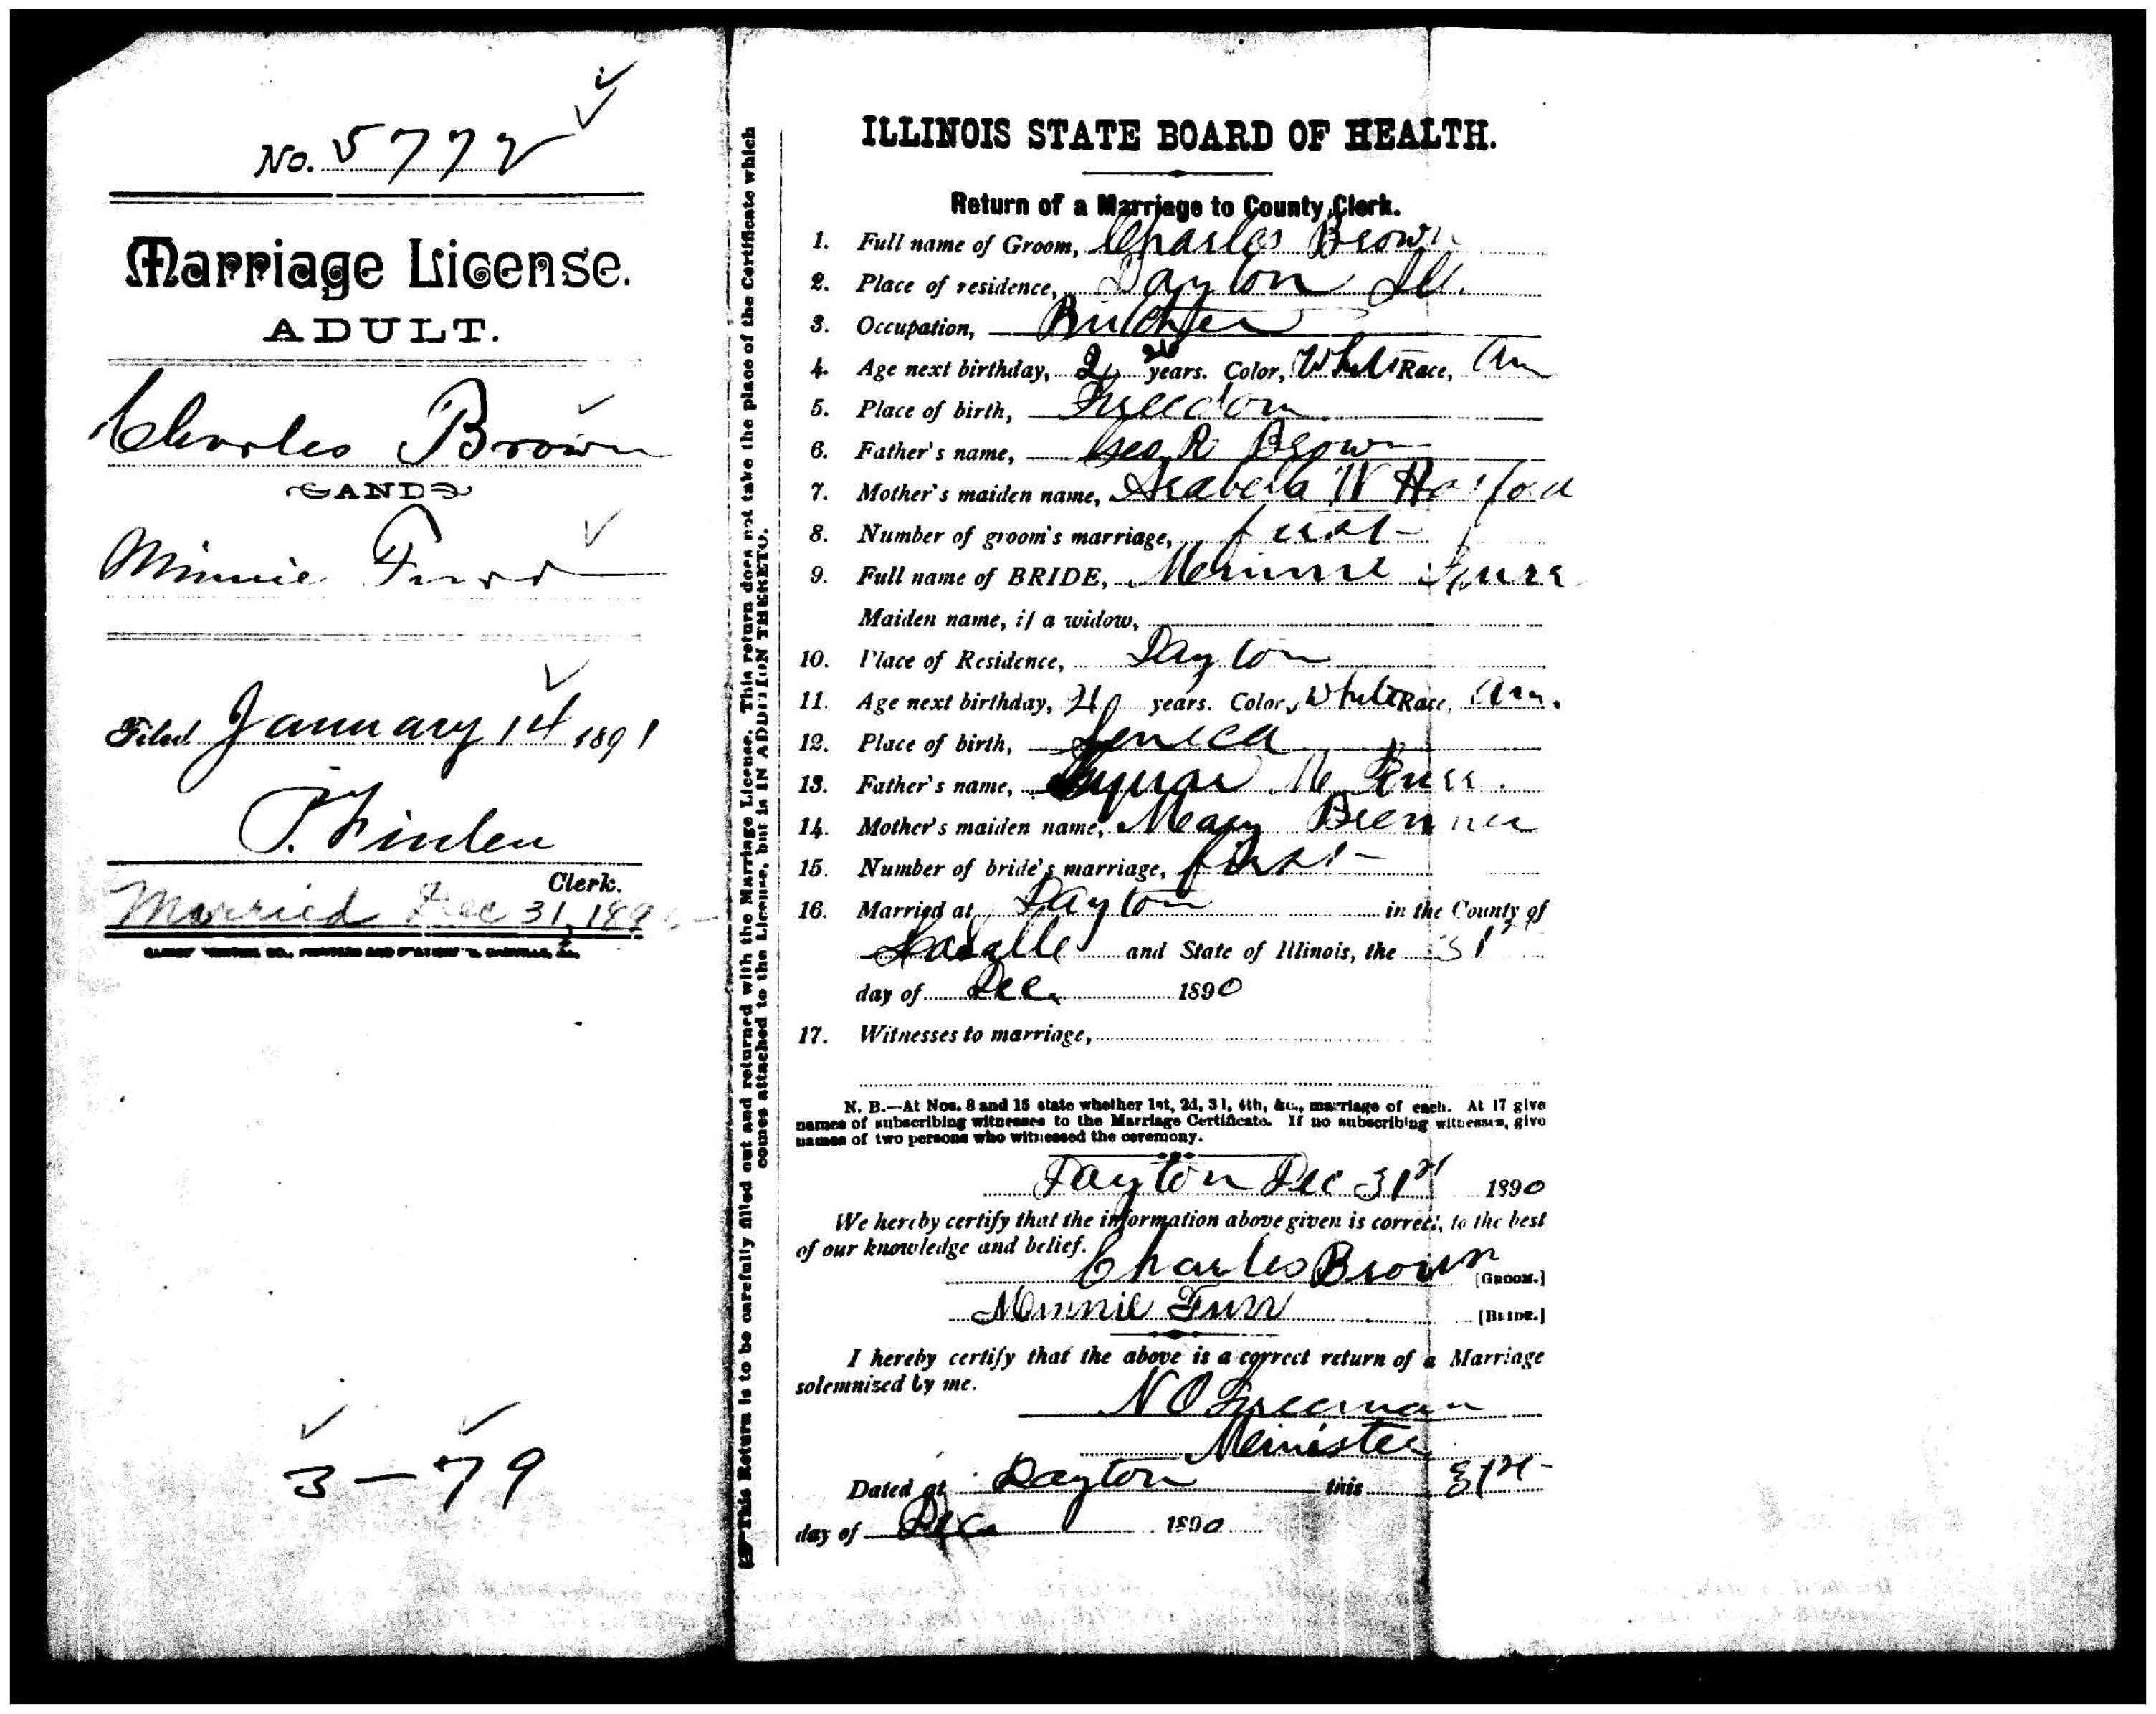 No. 5772
Marriage License.
ADULT.
Charles Brown
AND
Minnie Furr
Filed January 14 1891
T. Finlen
Clerk.
Married Dec 31, 189
3-79
This Return is to be carefully filled out and returned with the Marriage License. This return does not take the place of the Certificate which
comes attached to the License, but is IN ADDITION THERETO.
ILLINOIS STATE BOARD OF HEALTH.
Return of a Marriage to County Clerk.
1. Full name of Groom, Charles Brown
2. Place of residence, Dayton Ill.
3. Occupation, Butcher
4. Age next birthday, years. Color, White Race, Am
5. Place of birth, Freedom
6. Father's name, Geo R Brown
7. Mother's maiden name, Arabella W
8. Number of groom's marriage, first
9. Full name of BRIDE, Minnie Furr
Maiden name, if a widow,
10. Place of Residence, Dayton
11. Age next birthday, years. Color, White Race, Am.
12. Place of birth, Seneca
13. Father's name, M Furr.
14. Mother's maiden name, Mary Brenner
15. Number of bride's marriage, first
16. Married at Dayton in the County of
Lasalle and State of Illinois, the 31st
day of Dec. 1890
17. Witnesses to marriage,
N. B.—At Nos. 8 and 15 state whether 1st, 2d, 3d, 4th, &c., marriage of each. At 17 give
names of subscribing witnesses to the Marriage Certificate. If no subscribing witnesses, give
names of two persons who witnessed the ceremony.
Dayton Dec 31st 1890
We hereby certify that the information above given is correct, to the best
of our knowledge and belief.
Charles Brown [GROOM.]
Minnie Furr [BRIDE.]
I hereby certify that the above is a correct return of a Marriage
solemnized by me.
N O Freeman
Minister
Dated at Dayton this 31st
day of Dec 1890